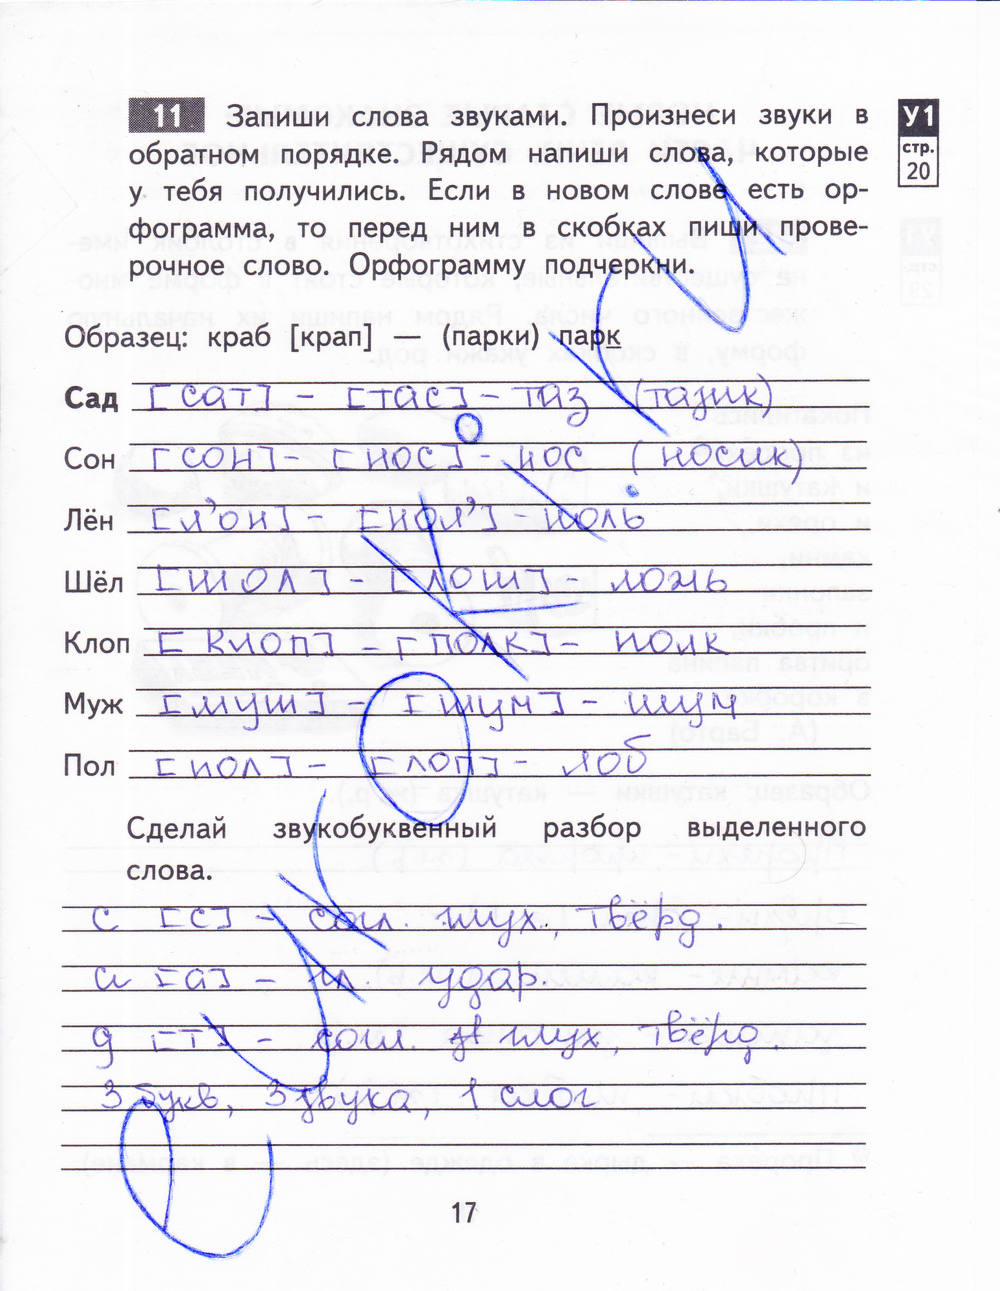 11 Запиши слова звуками. Произнеси звуки в
обратном порядке. Рядом напиши слова, которые
у тебя получились. Если в новом слове есть ор-
фограмма, то перед ним в скобках пиши прове-
рочное слово. Орфограмму подчеркни.
У1
стр.
20
Образец: краб [крап] — (парки) парк
Сад [сат] - [тас] - таз (тазик)
Сон [сон] - [нос] - нос (носик)
Лён [л'он] - [нол'] - ноль
Шёл [шол] - [лош] - ложь
Клоп [клоп] - [полк] - полк
Муж [муш] - [шум] - шум
Пол [пол] - [лоп] - лоб
Сделай звукобуквенный разбор выделенного
слова.
с [с] - согл. глух., твёрд.
а [а] - гл. удар.
д [т] - согл. глух., твёрд.
3 букв, 3 звука, 1 слог
17